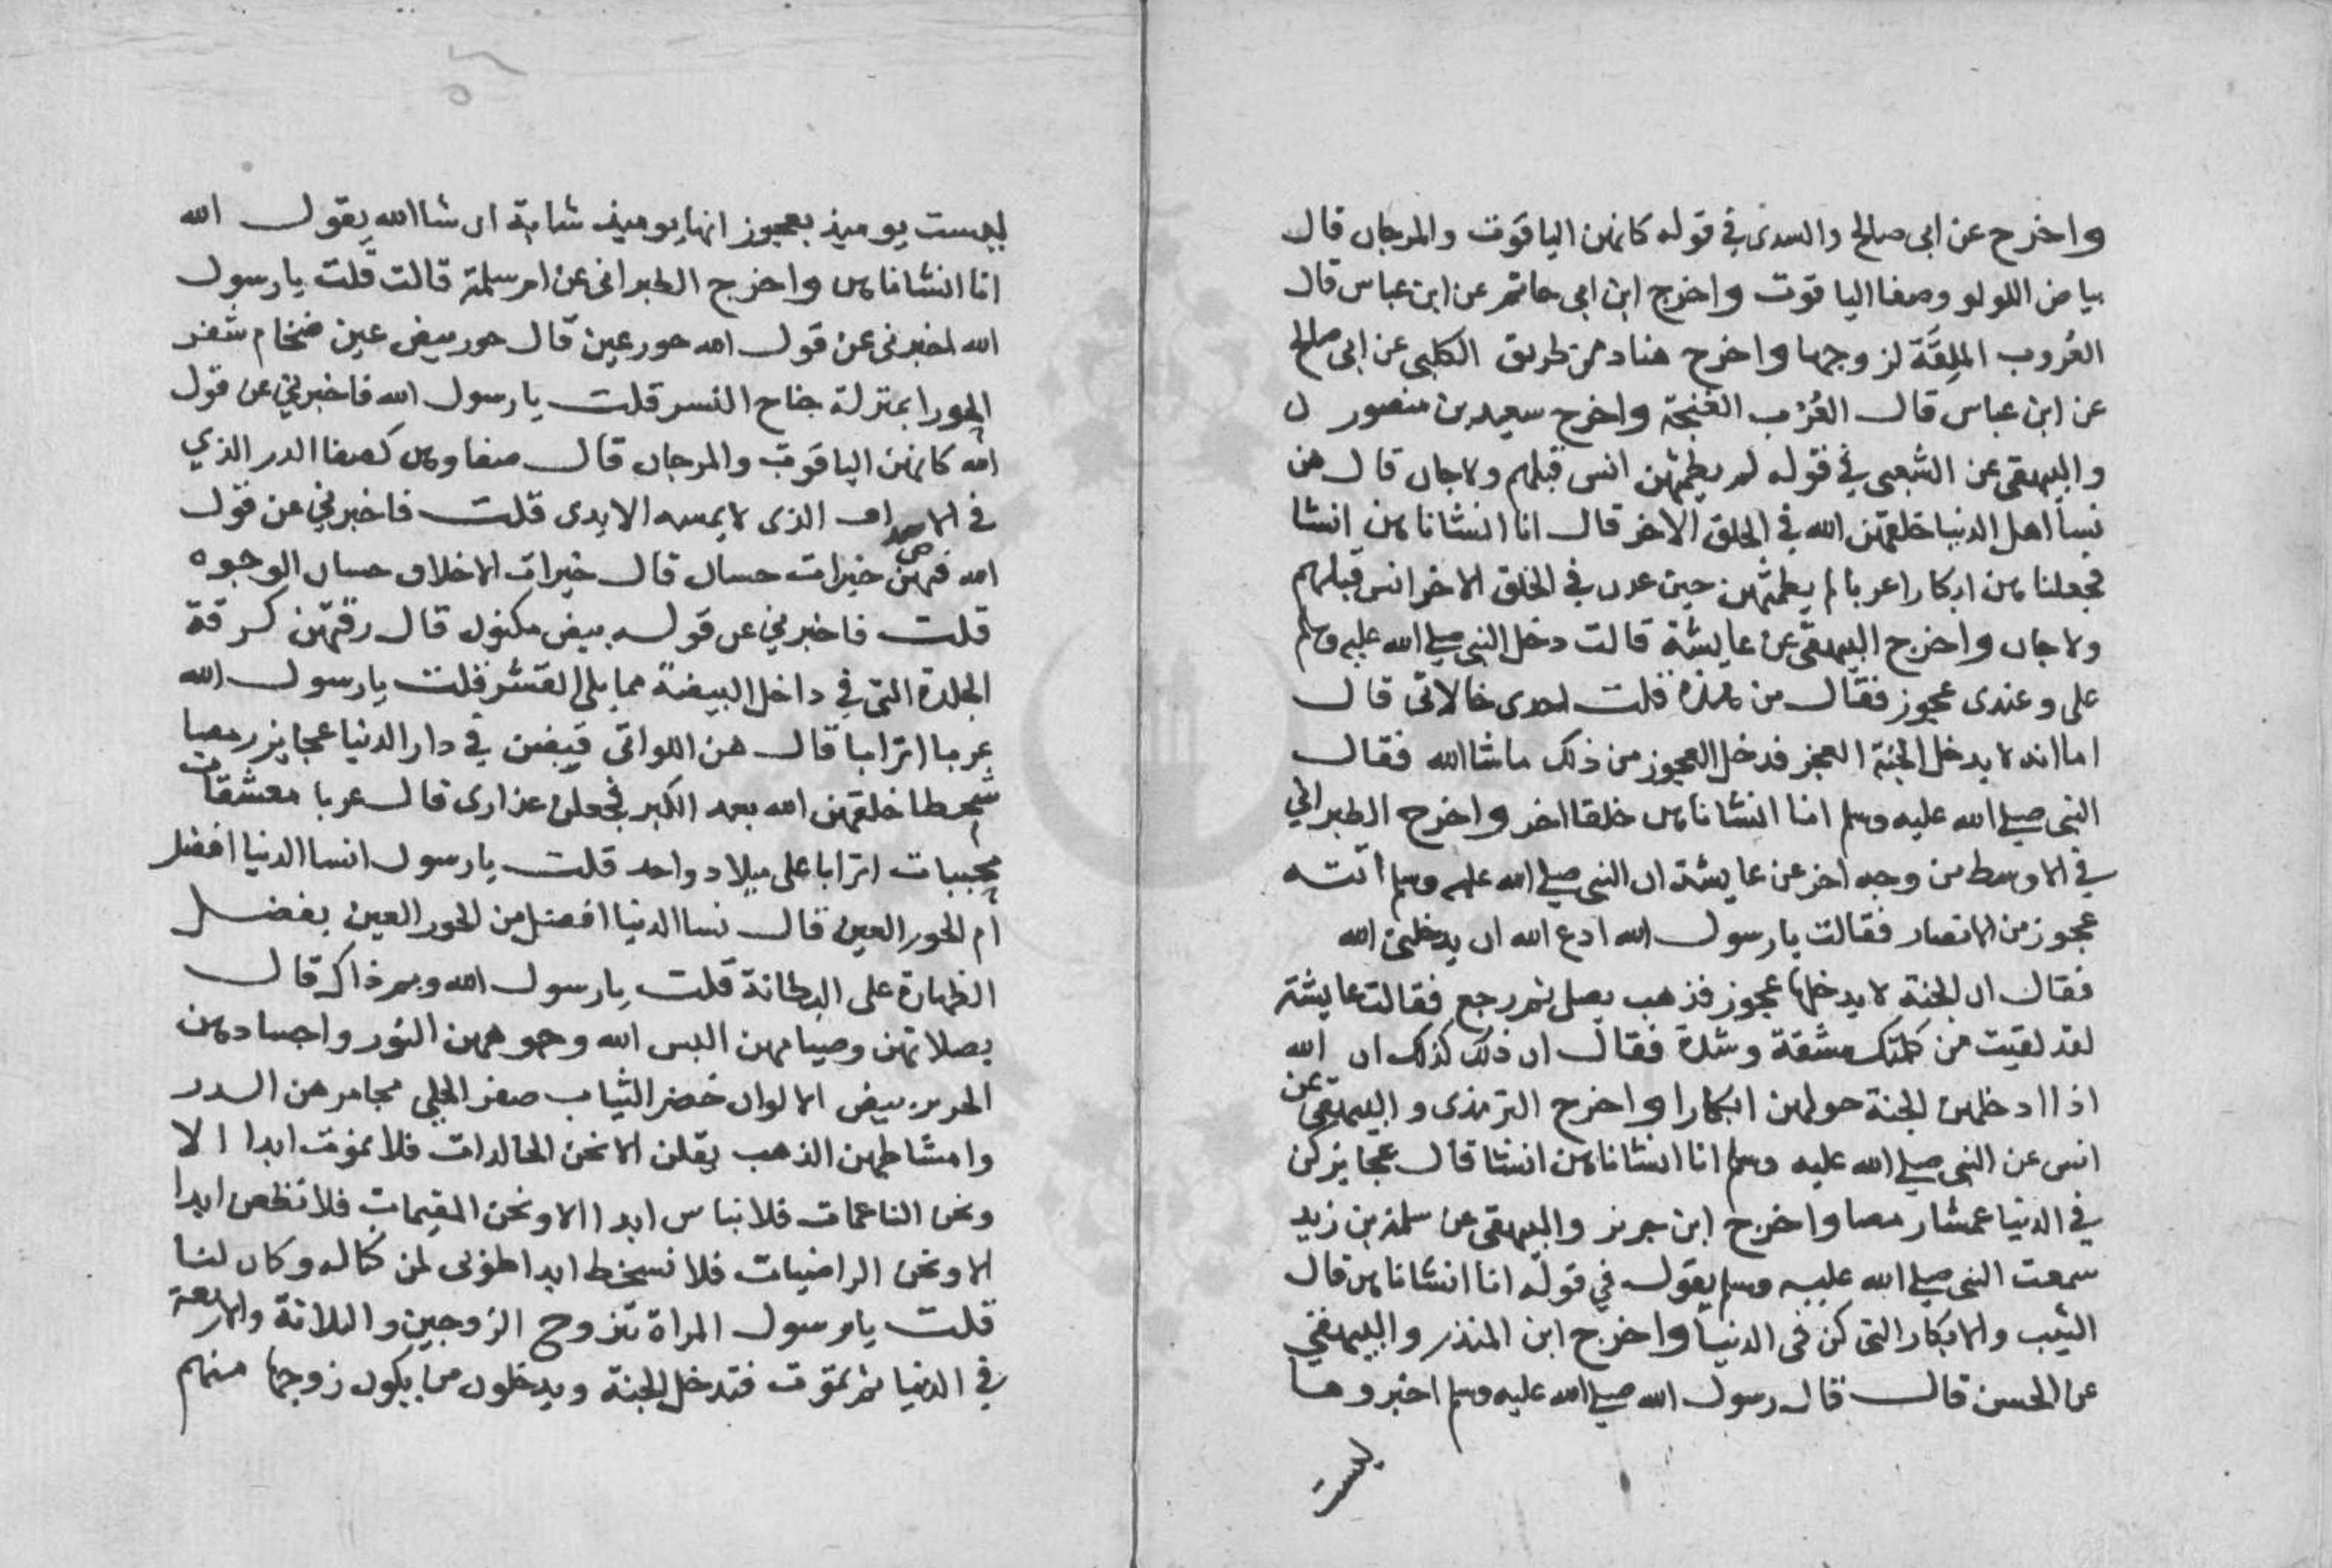 واخرج عن ابى صالح والسدى في قوله كانهن الياقوت والمرجان قال
بياض اللولو وصفا الياقوت واخرج ابن ابى حاتم عن ابن عباس قال
العُروب الملِقَة لزوجها واخرج هناد من طريق الكلبى عن ابى صالح
عن ابن عباس قال العُرُب الغنجة واخرج سعيد بن منصور
والبيهقى عن الشعبى في قوله لم يطمثهن انس قبلهم ولا جان قال هن
نسا اهل الدنيا خلقهن الله في الخلق الاخر قال انا انشاناهن انشا
فجعلناهن ابكارا عربا لم يطمثهن حين عدن في الخلق الاخر انس قبلهم
ولا جان واخرج البيهقى عن عايشة قالت دخل النبى صلى الله عليه وسلم
على وعندى عجوز فقال من هذه قلت احدى خالاتى قال
اما انه لا يدخل الجنة العجز فدخل العجوز من ذلك ماشا الله فقال
النبى صلى الله عليه وسلم انا انشاناهن خلقا اخر واخرج الطبرانى
في الاوسط من وجه اخر عن عايشة ان النبى صلى الله عليه وسلم اتته
عجوز من الانصار فقالت يا رسول الله ادع الله ان يدخلنى الله
فقال ان الجنة لا يدخلها عجوز فذهب يصل ثم رجع فقالت عايشة
لقد لقيت من كلمتك مشقة وشدة فقال ان ذلك كذلك ان الله
اذا ادخلهن الجنة حولهن ابكارا واخرج الترمذى والبيهقى عن
انس عن النبى صلى الله عليه وسلم انا انشاناهن انشا قال عجايز كن
في الدنيا عمشا رمصا واخرج ابن جرير والبيهقى عن سلمة بن زيد
سمعت النبى صلى الله عليه وسلم يقول في قوله انا انشاناهن قال
الثيب والابكار التى كن فى الدنيا واخرج ابن المنذر والبيهقي
عن الحسن قال قال رسول الله صلى الله عليه وسلم اخبروها
ليست
ليست يوميذ بعجوز انها يوميذ شابة ان شا الله يقول الله
انا انشاناهن واخرج الطبرانى عن ام سلمة قالت قلت يا رسول
الله اخبرنى عن قول الله حور عين قال حور بيض عين ضخام شفر
الحورا بمنزلة جناح النسر قلت يا رسول الله فاخبرني عن قول
الله كانهن الياقوت والمرجان قال صفاوهن كصفا الدر الذي
في الاصداف الذى لا يمسه الايدى قلت فاخبرني عن قول
الله فيهن خيرات حسان قال خيرات الاخلاق حسان الوجوه
قلت فاخبرني عن قوله بيض مكنون قال رقتهن كرقة
الجلدة التى في داخل البيضة مما يلى القشر قلت يا رسول الله
عربا اترابا قال هن اللواتى قبضن في دار الدنيا عجايز رمصا
شمطا خلقهن الله بعد الكبر فجعلن عذارى قال عربا معشقات
محببات اترابا على ميلاد واحد قلت يا رسول انسا الدنيا افضل
ام الحور العين قال نسا الدنيا افضل من الحور العين بفضل
الظهارة على البطانة قلت يا رسول الله وبم ذاك قال
بصلاتهن وصيامهن البس الله وجوههن النور واجسادهن
الحرير بيض الالوان خضر الثياب صفر الحلى مجامرهن الدر
وامشاطهن الذهب يقلن الا نحن الخالدات فلا نموت ابدا الا
ونحن الناعمات فلا نباس ابدا الا ونحن المقيمات فلا نظعن ابدا
الا ونحن الراضيات فلا نسخط ابدا طوبى لمن كنا له وكان لنا
قلت يا رسول المراة تتزوج الزوجين والثلاثة والاربعة
في الدنيا ثم تموت فتدخل الجنة ويدخلون من يكون زوجها منهم